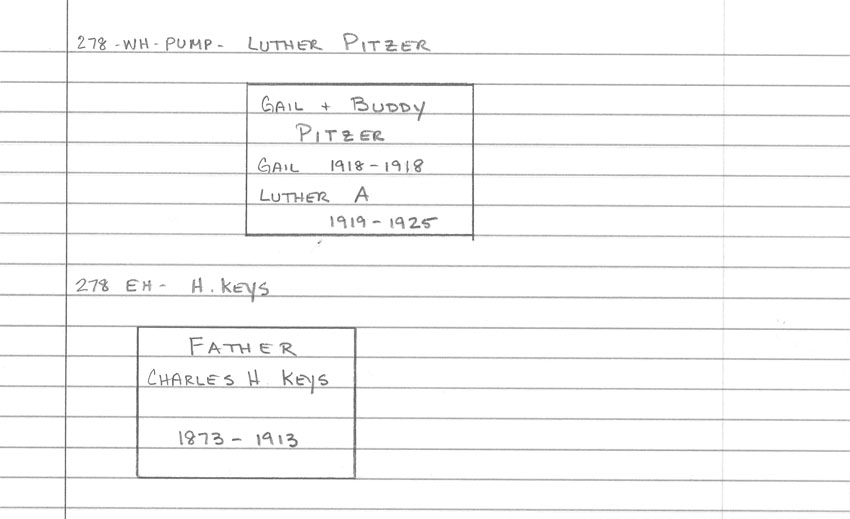 278-WH-PUMP- LUTHER PITZER
GAIL + BUDDY
PITZER
GAIL 1918-1918
LUTHER A
1919-1925
278 EH- H. KEYS
FATHER
CHARLES H KEYS
1873-1913